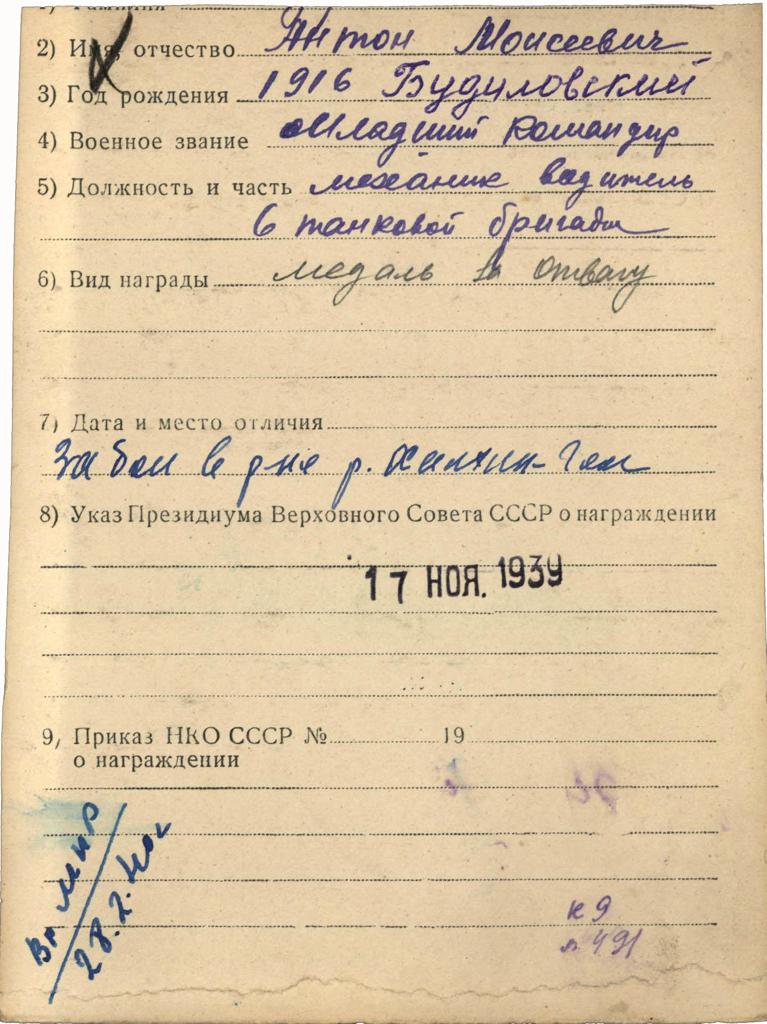 1) Фамилия
2) Имя, отчество Антон Моисеевич
3) Год рождения 1916 Будиловский
4) Военное звание Младший командир
5) Должность и часть механик водитель
6 танковой бригады
6) Вид награды медаль за отвагу
7) Дата и место отличия
За бои в р-не р. Халхин-Гол
8) Указ Президиума Верховного Совета СССР о награждении
17 НОЯ. 1939
9) Приказ НКО СССР № 19
о награждении
Вр
28.2.40г
к 9
л 491